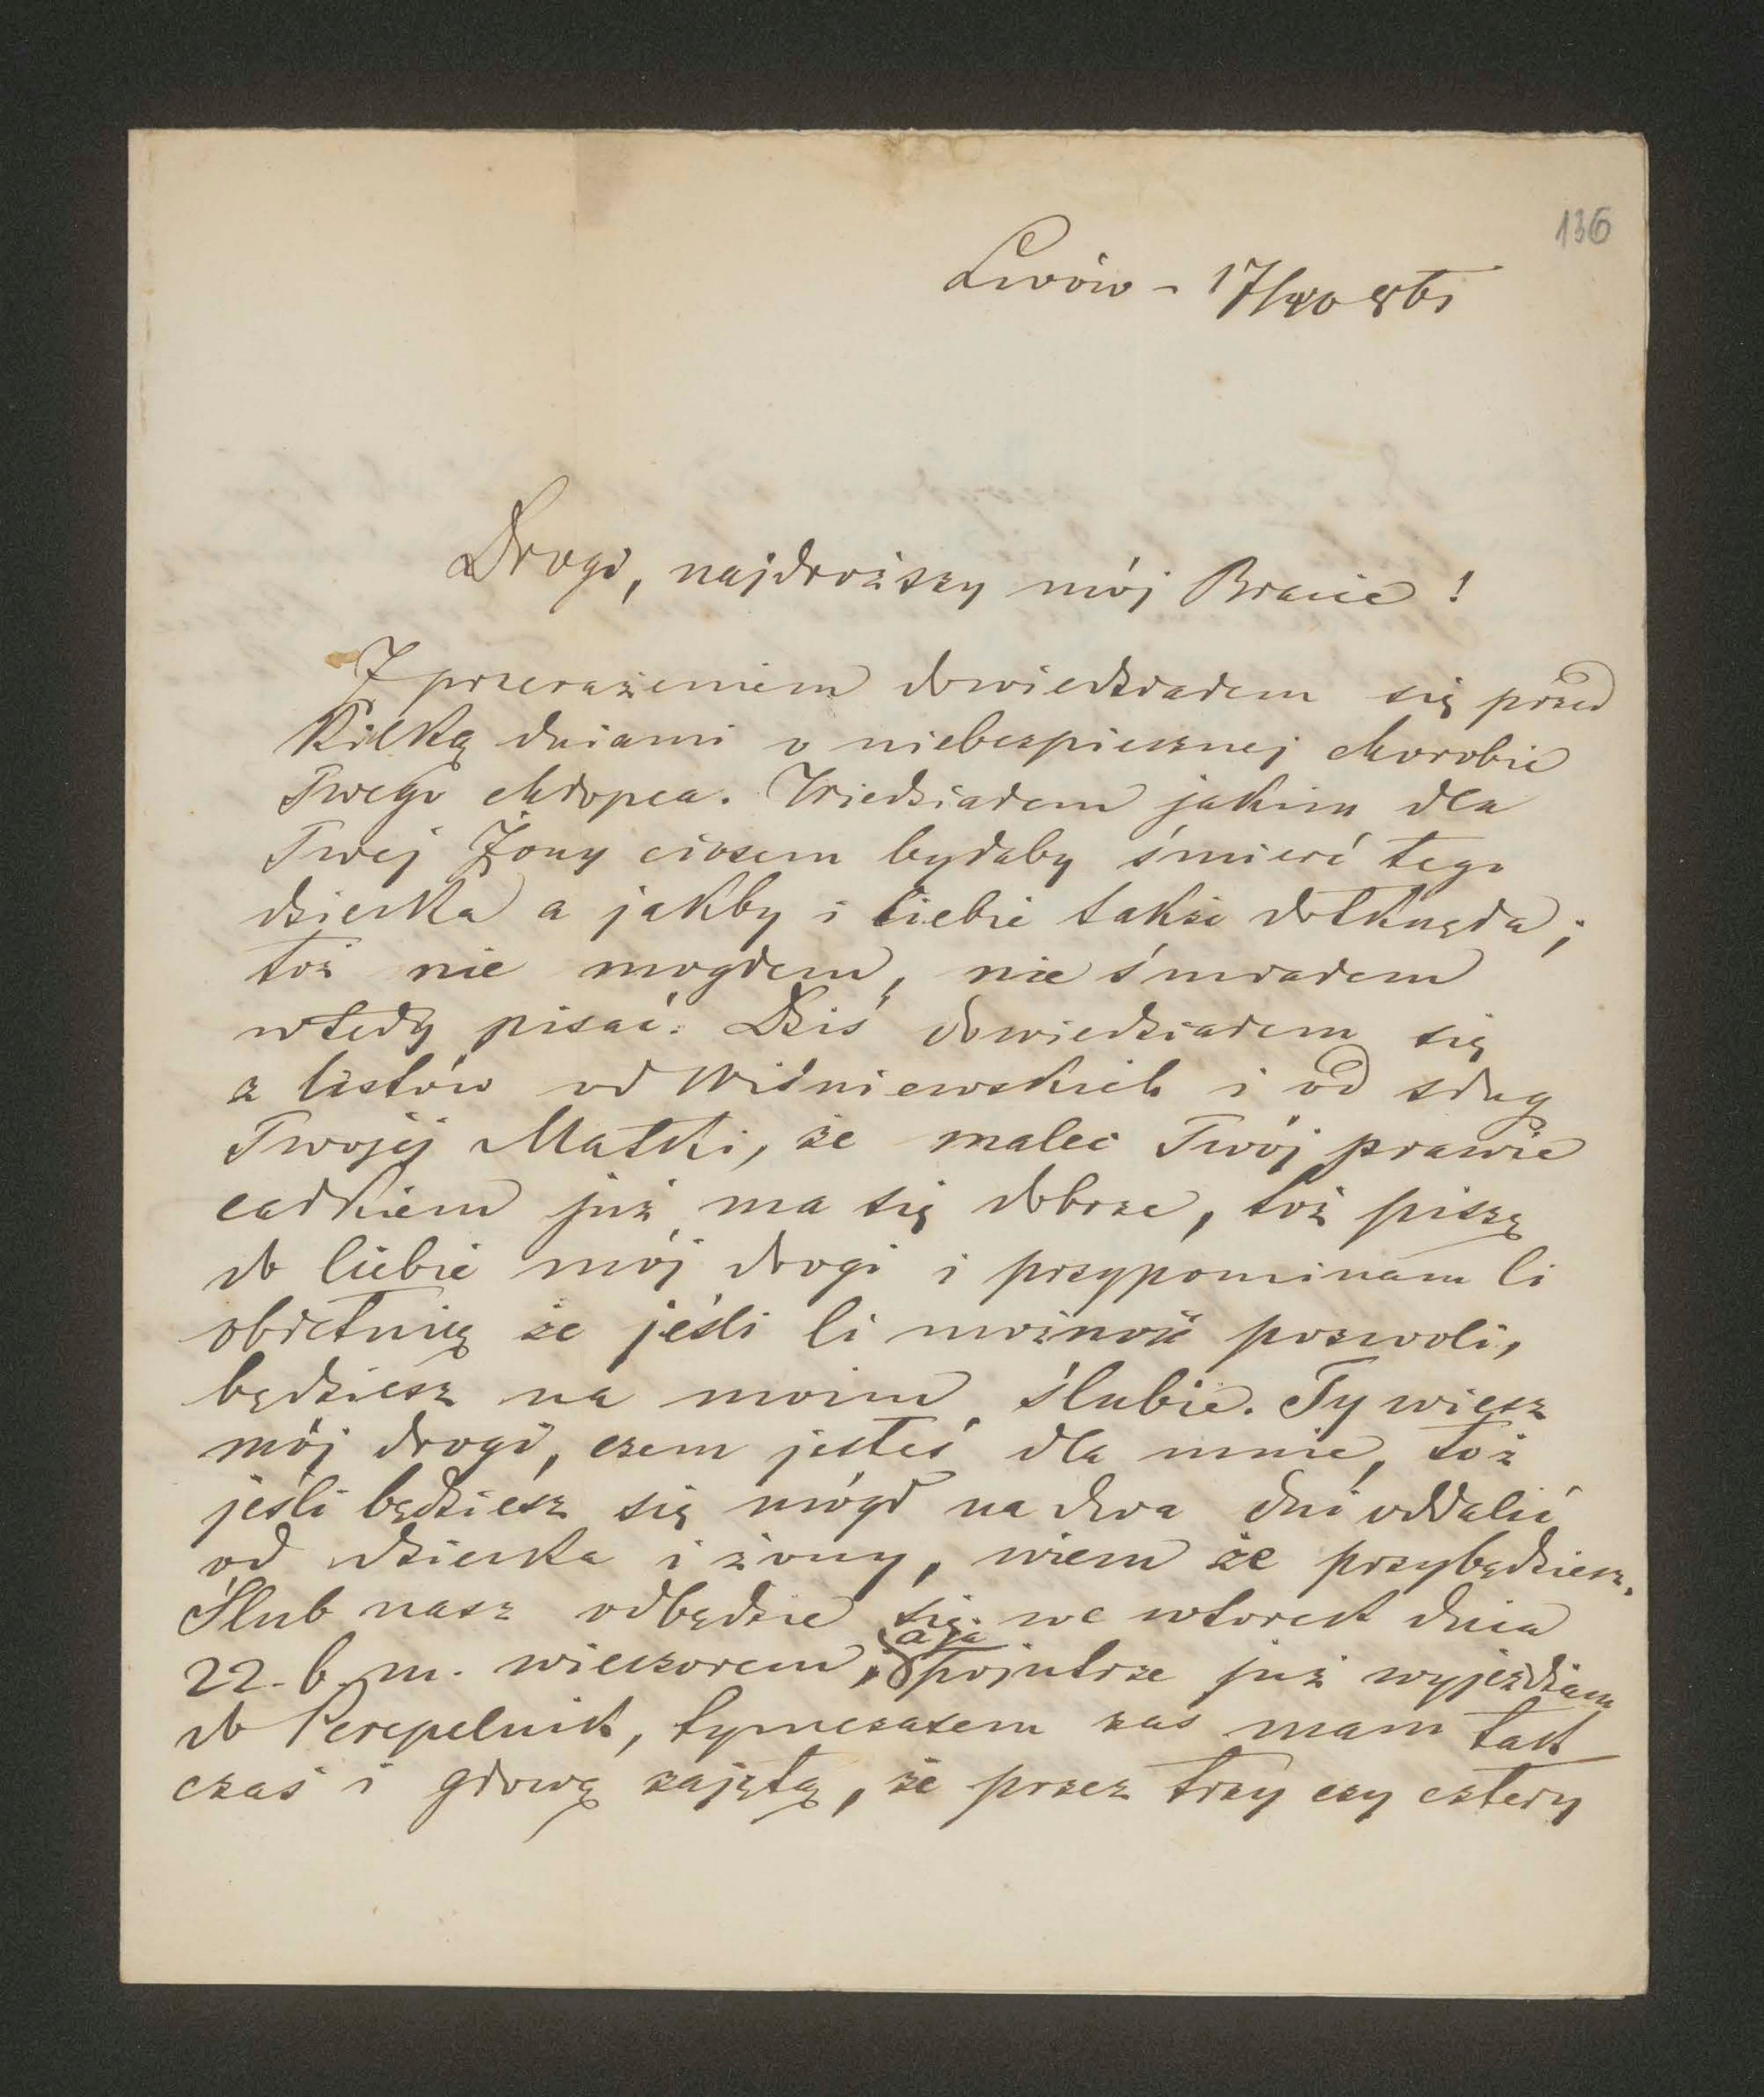 136
Lwów - 17/10 861
Drogi, najdroższy mój Bracie!
Z przerażeniem dowiedziałem się przed
kilką dniami o niebezpiecznej chorobie
Twego chłopca. Wiedziałem jakim dla
Twej Żony ciosem byłaby śmierć tego
dziecka a jakby i Ciebie także dotknęła;
toż nie mogłem, nie śmiałem
wtedy pisać. Dziś dowiedziałem się
z listów od Wiśniewskich i od sług
Twojej Matki, że malec Twój prawie
całkiem już ma się dobrze, toż piszę
do Ciebie mój drogi i przypominam Ci
obietnicę że jeśli Ci możność pozwoli,
będziesz na moim ślubie. Ty wiesz
mój drogi, czem jesteś dla mnie, toż
jeśli będziesz się mógł na dwa dni oddalić
od dziecka i żony, wiem że przybędziesz.
Ślub nasz odbędzie się we wtorek dnia
22. b. m. wieczorem, a ja pojutrze już wyjeżdżam
do Perepelnik, tymczasem zaś mam tak
czas i głowę zajętą, że przez trzy czy cztery